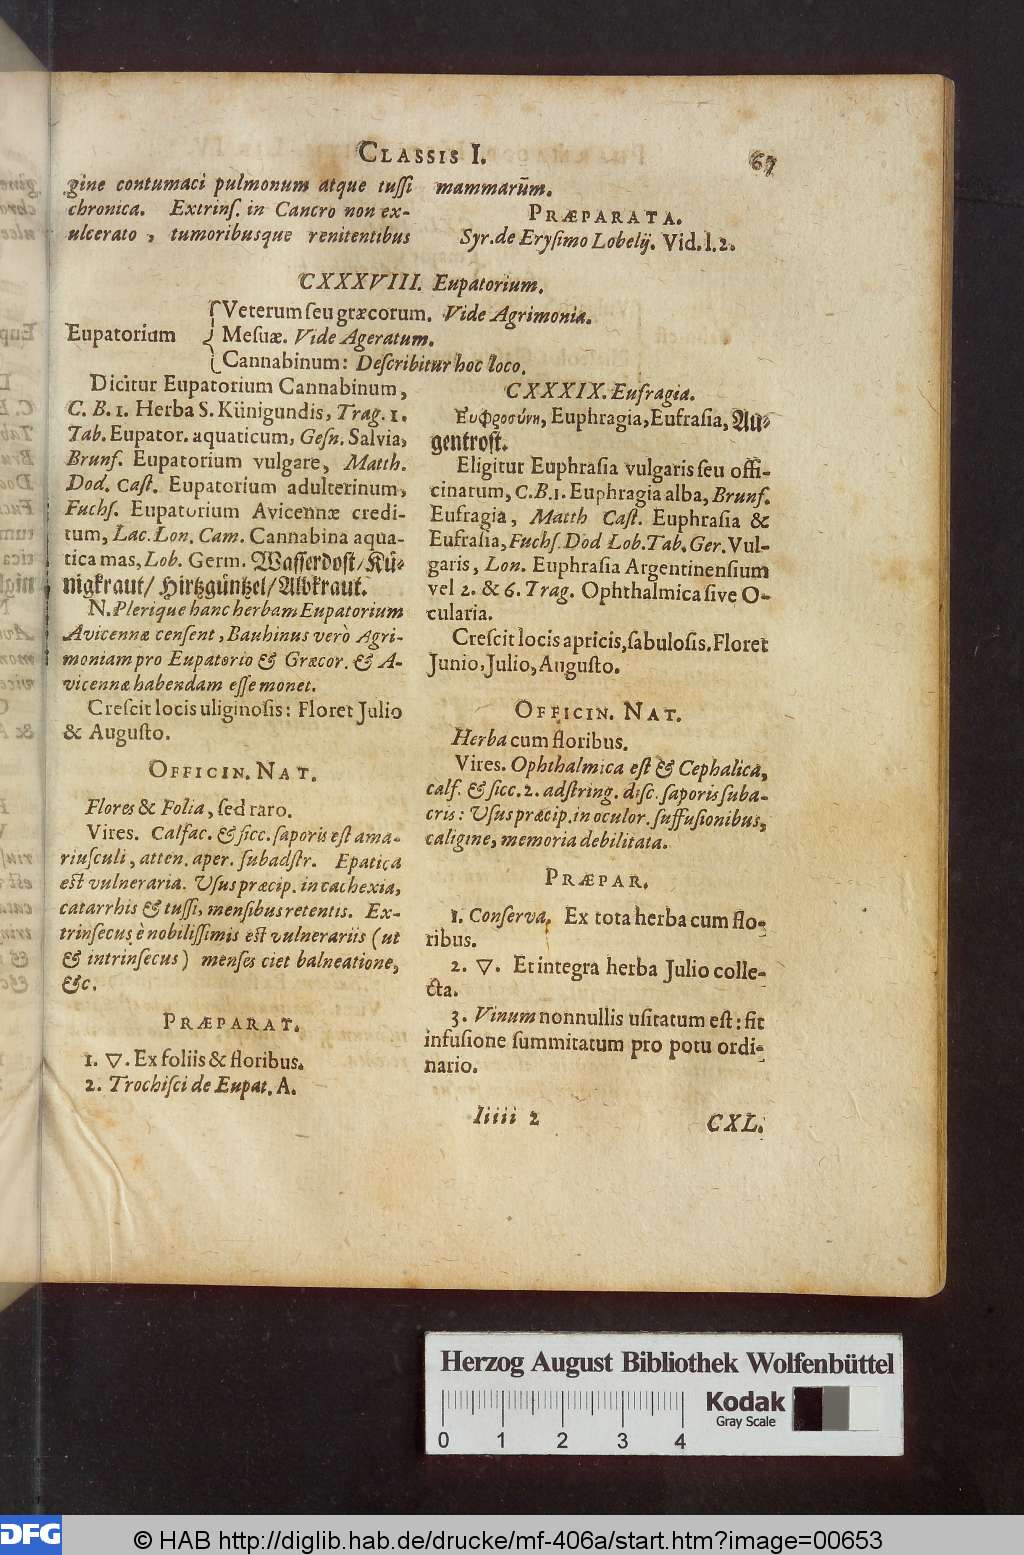 CLASSIS I.
67
gine contumaci pulmonum atque tuſſi
chronica. Extrinſ. in Cancro non ex-
ulcerato, tumoribusque renitentibus
mammarūm.
PRÆPARATA.
Syr. de Eryſimo Lobelij. Vid. l. 2.
CXXXVIII. Eupatorium.
Eupatorium
Veterum ſeu græcorum. Vide Agrimonia.
Meſuæ. Vide Ageratum.
Cannabinum: Deſcribitur hoc loco.
Dicitur Eupatorium Cannabinum,
C. B. 1. Herba S. Künigundis, Trag. 1.
Tab. Eupator. aquaticum, Geſn. Salvia,
Brunſ. Eupatorium vulgare, Matth.
Dod. Caſt. Eupatorium adulterinum,
Fuchſ. Eupatorium Avicennæ credi-
tum, Lac. Lon. Cam. Cannabina aqua-
tica mas, Lob. Germ. Waſſerdoſt/ Kü-
nigkraut/ Hirtzgüntzel/ Albkraut.
N. Plerique hanc herbam Eupatorium
Avicennæ cenſent, Bauhinus verò Agri-
moniam pro Eupatorio & Græcor. & A-
vicennæ habendam eſſe monet.
Creſcit locis uliginoſis: Floret Julio
& Auguſto.
OFFICIN. NAT.
Flores & Folia, ſed raro.
Vires. Calfac. & ſicc. ſaporis eſt ama-
riuſculi, atten. aper. ſubadſtr. Epatica
eſt vulneraria. Uſus præcip. in cachexia,
catarrhis & tuſſi, menſibus retentis. Ex-
trinſecus è nobiliſſimis eſt vulnerariis (ut
& intrinſecus) menſes ciet balneatione,
&c.
PRÆPARAT.
1. ▽. Ex foliis & floribus.
2. Trochiſci de Eupat. A.
CXXXIX. Eufragia.
Ευφροσύνη, Euphragia, Eufraſia, Au-
gentroſt.
Eligitur Euphraſia vulgaris ſeu offi-
cinarum, C. B. 1. Euphragia alba, Brunſ.
Eufragia, Matth Caſt. Euphraſia &
Eufraſia, Fuchſ. Dod Lob. Tab. Ger. Vul-
garis, Lon. Euphraſia Argentinenſium
vel 2. & 6. Trag. Ophthalmica ſive O-
cularia.
Creſcit locis apricis, ſabuloſis. Floret
Junio, Julio, Auguſto.
OFFICIN. NAT.
Herba cum floribus.
Vires. Ophthalmica eſt & Cephalica,
calf. & ſicc. 2. adſtring. diſc. ſaporis ſuba-
cris: Uſus præcip. in oculor. ſuffuſionibus,
caligine, memoria debilitata.
PRÆPAR.
1. Conſerva, Ex tota herba cum flo-
ribus.
2. ▽. Et integra herba Julio colle-
cta.
3. Vinum nonnullis uſitatum eſt: fit
infuſione ſummitatum pro potu ordi-
nario.
Iiiii 2
CXL.
Herzog August Bibliothek Wolfenbüttel
Kodak
Gray Scale
0 1 2 3 4
DFG
© HAB http://diglib.hab.de/drucke/mf-406a/start.htm?image=00653